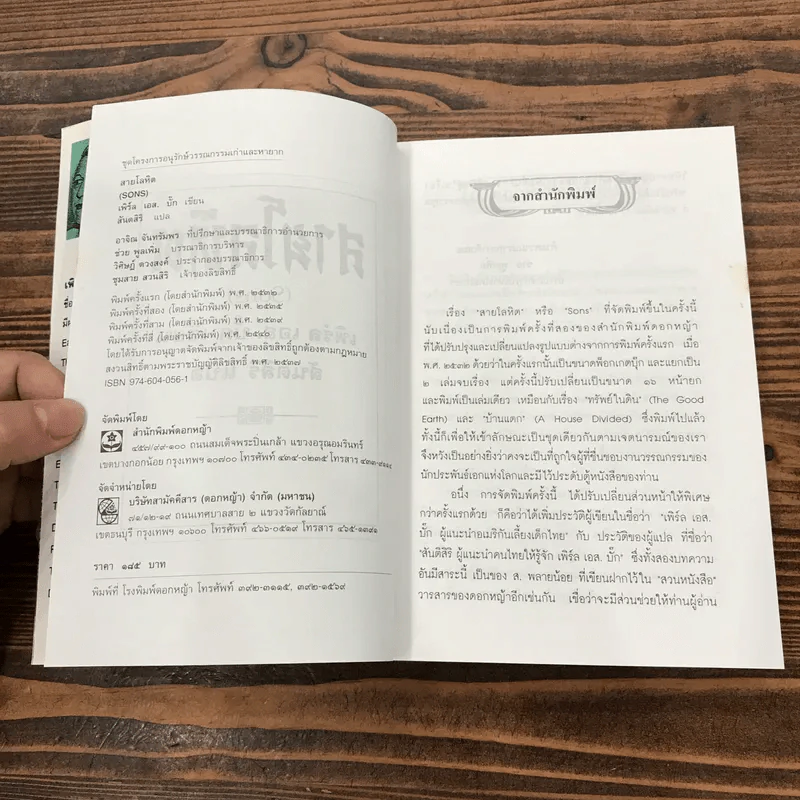 ชุดโครงการอนุรักษ์วรรณกรรมเก่าและหายาก
สายโลหิต
(SONS)
เพิร์ล เอส. บั๊ก เขียน
สันตสิริ แปล
อาจิณ จันทรัมพร ที่ปรึกษาและบรรณาธิการอำนวยการ
ช่วย พูลเพิ่ม บรรณาธิการบริหาร
วิศิษฏ์ ดวงสงค์ ประจำกองบรรณาธิการ
ชุมสาย สวนสิริ เจ้าของลิขสิทธิ์
พิมพ์ครั้งแรก (โดยสำนักพิมพ์) พ.ศ. ๒๕๓๒
พิมพ์ครั้งที่สอง (โดยสำนักพิมพ์) พ.ศ. ๒๕๓๕
พิมพ์ครั้งที่สาม (โดยสำนักพิมพ์) พ.ศ. ๒๕๓๙
พิมพ์ครั้งที่สี่ (โดยสำนักพิมพ์) พ.ศ. ๒๕๔๐
โดยได้รับการอนุญาตจัดพิมพ์จากเจ้าของลิขสิทธิ์ถูกต้องตามกฎหมาย
สงวนสิทธิ์ตามพระราชบัญญัติลิขสิทธิ์ พ.ศ. ๒๕๓๗
ISBN 974-604-056-1
จัดพิมพ์โดย
สำนักพิมพ์ดอกหญ้า
๔๕๗/๙๙-๑๐๐ ถนนสมเด็จพระปิ่นเกล้า แขวงอรุณอมรินทร์
เขตบางกอกน้อย กรุงเทพฯ ๑๐๗๐๐ โทรศัพท์ ๔๓๔-๐๒๓๕ โทรสาร
จัดจำหน่ายโดย
บริษัทสามัคคีสาร (ดอกหญ้า) จำกัด (มหาชน)
๗๑/๑๒-๑๙ ถนนเทศบาลสาย ๒ แขวงวัดกัลยาณ์
เขตธนบุรี กรุงเทพฯ ๑๐๖๐๐ โทรศัพท์ ๔๖๖-๐๕๑๙ โทรสาร ๔๖๕-๑๓๙๑
ราคา ๑๘๕ บาท
พิมพ์ที่ โรงพิมพ์ดอกหญ้า โทรศัพท์ ๓๙๒-๓๑๑๕, ๓๙๒-๑๕๖๙
จากสำนักพิมพ์
เรื่อง "สายโลหิต" หรือ "Sons" ที่จัดพิมพ์ขึ้นในครั้งนี้
นับเนื่องเป็นการพิมพ์ครั้งที่สองของสำนักพิมพ์ดอกหญ้า
ที่ได้ปรับปรุงและเปลี่ยนแปลงรูปแบบต่างจากการพิมพ์ครั้งแรก เมื่อ
พ.ศ. ๒๕๓๒ ด้วยว่าในครั้งแรกนั้นเป็นขนาดพ็อกเกตบุ๊ก และแยกเป็น
๒ เล่มจบเรื่อง แต่ครั้งนี้ปรับเปลี่ยนเป็นขนาด ๑๖ หน้ายก
และพิมพ์เป็นเล่มเดียว เหมือนกับเรื่อง "ทรัพย์ในดิน" (The Good
Earth) และ "บ้านแตก" (A House Divided) ซึ่งพิมพ์ไปแล้ว
ทั้งนี้ก็เพื่อให้เข้าลักษณะเป็นชุดเดียวกันตามเจตนารมณ์ของเรา
จึงหวังเป็นอย่างยิ่งว่าคงจะเป็นที่ถูกใจผู้ที่ชื่นชอบงานวรรณกรรมของ
นักประพันธ์เอกแห่งโลกและมีไว้ประดับตู้หนังสือของท่าน
อนึ่ง การจัดพิมพ์ครั้งนี้ ได้ปรับเปลี่ยนส่วนหน้าให้พิเศษ
กว่าครั้งแรกด้วย ก็คือว่าได้เพิ่มประวัติผู้เขียนในชื่อว่า "เพิร์ล เอส.
บั๊ก ผู้แนะนำอเมริกันเลี้ยงเด็กไทย" กับ ประวัติของผู้แปล ที่ชื่อว่า
"สันติสิริ ผู้แนะนำคนไทยให้รู้จัก เพิร์ล เอส. บั๊ก" ซึ่งทั้งสองบทความ
อันมีสาระนี้ เป็นของ ส. พลายน้อย ที่เขียนฝากไว้ใน "สวนหนังสือ"
วารสารของดอกหญ้าอีกเช่นกัน เชื่อว่าจะมีส่วนช่วยให้ท่านผู้อ่าน